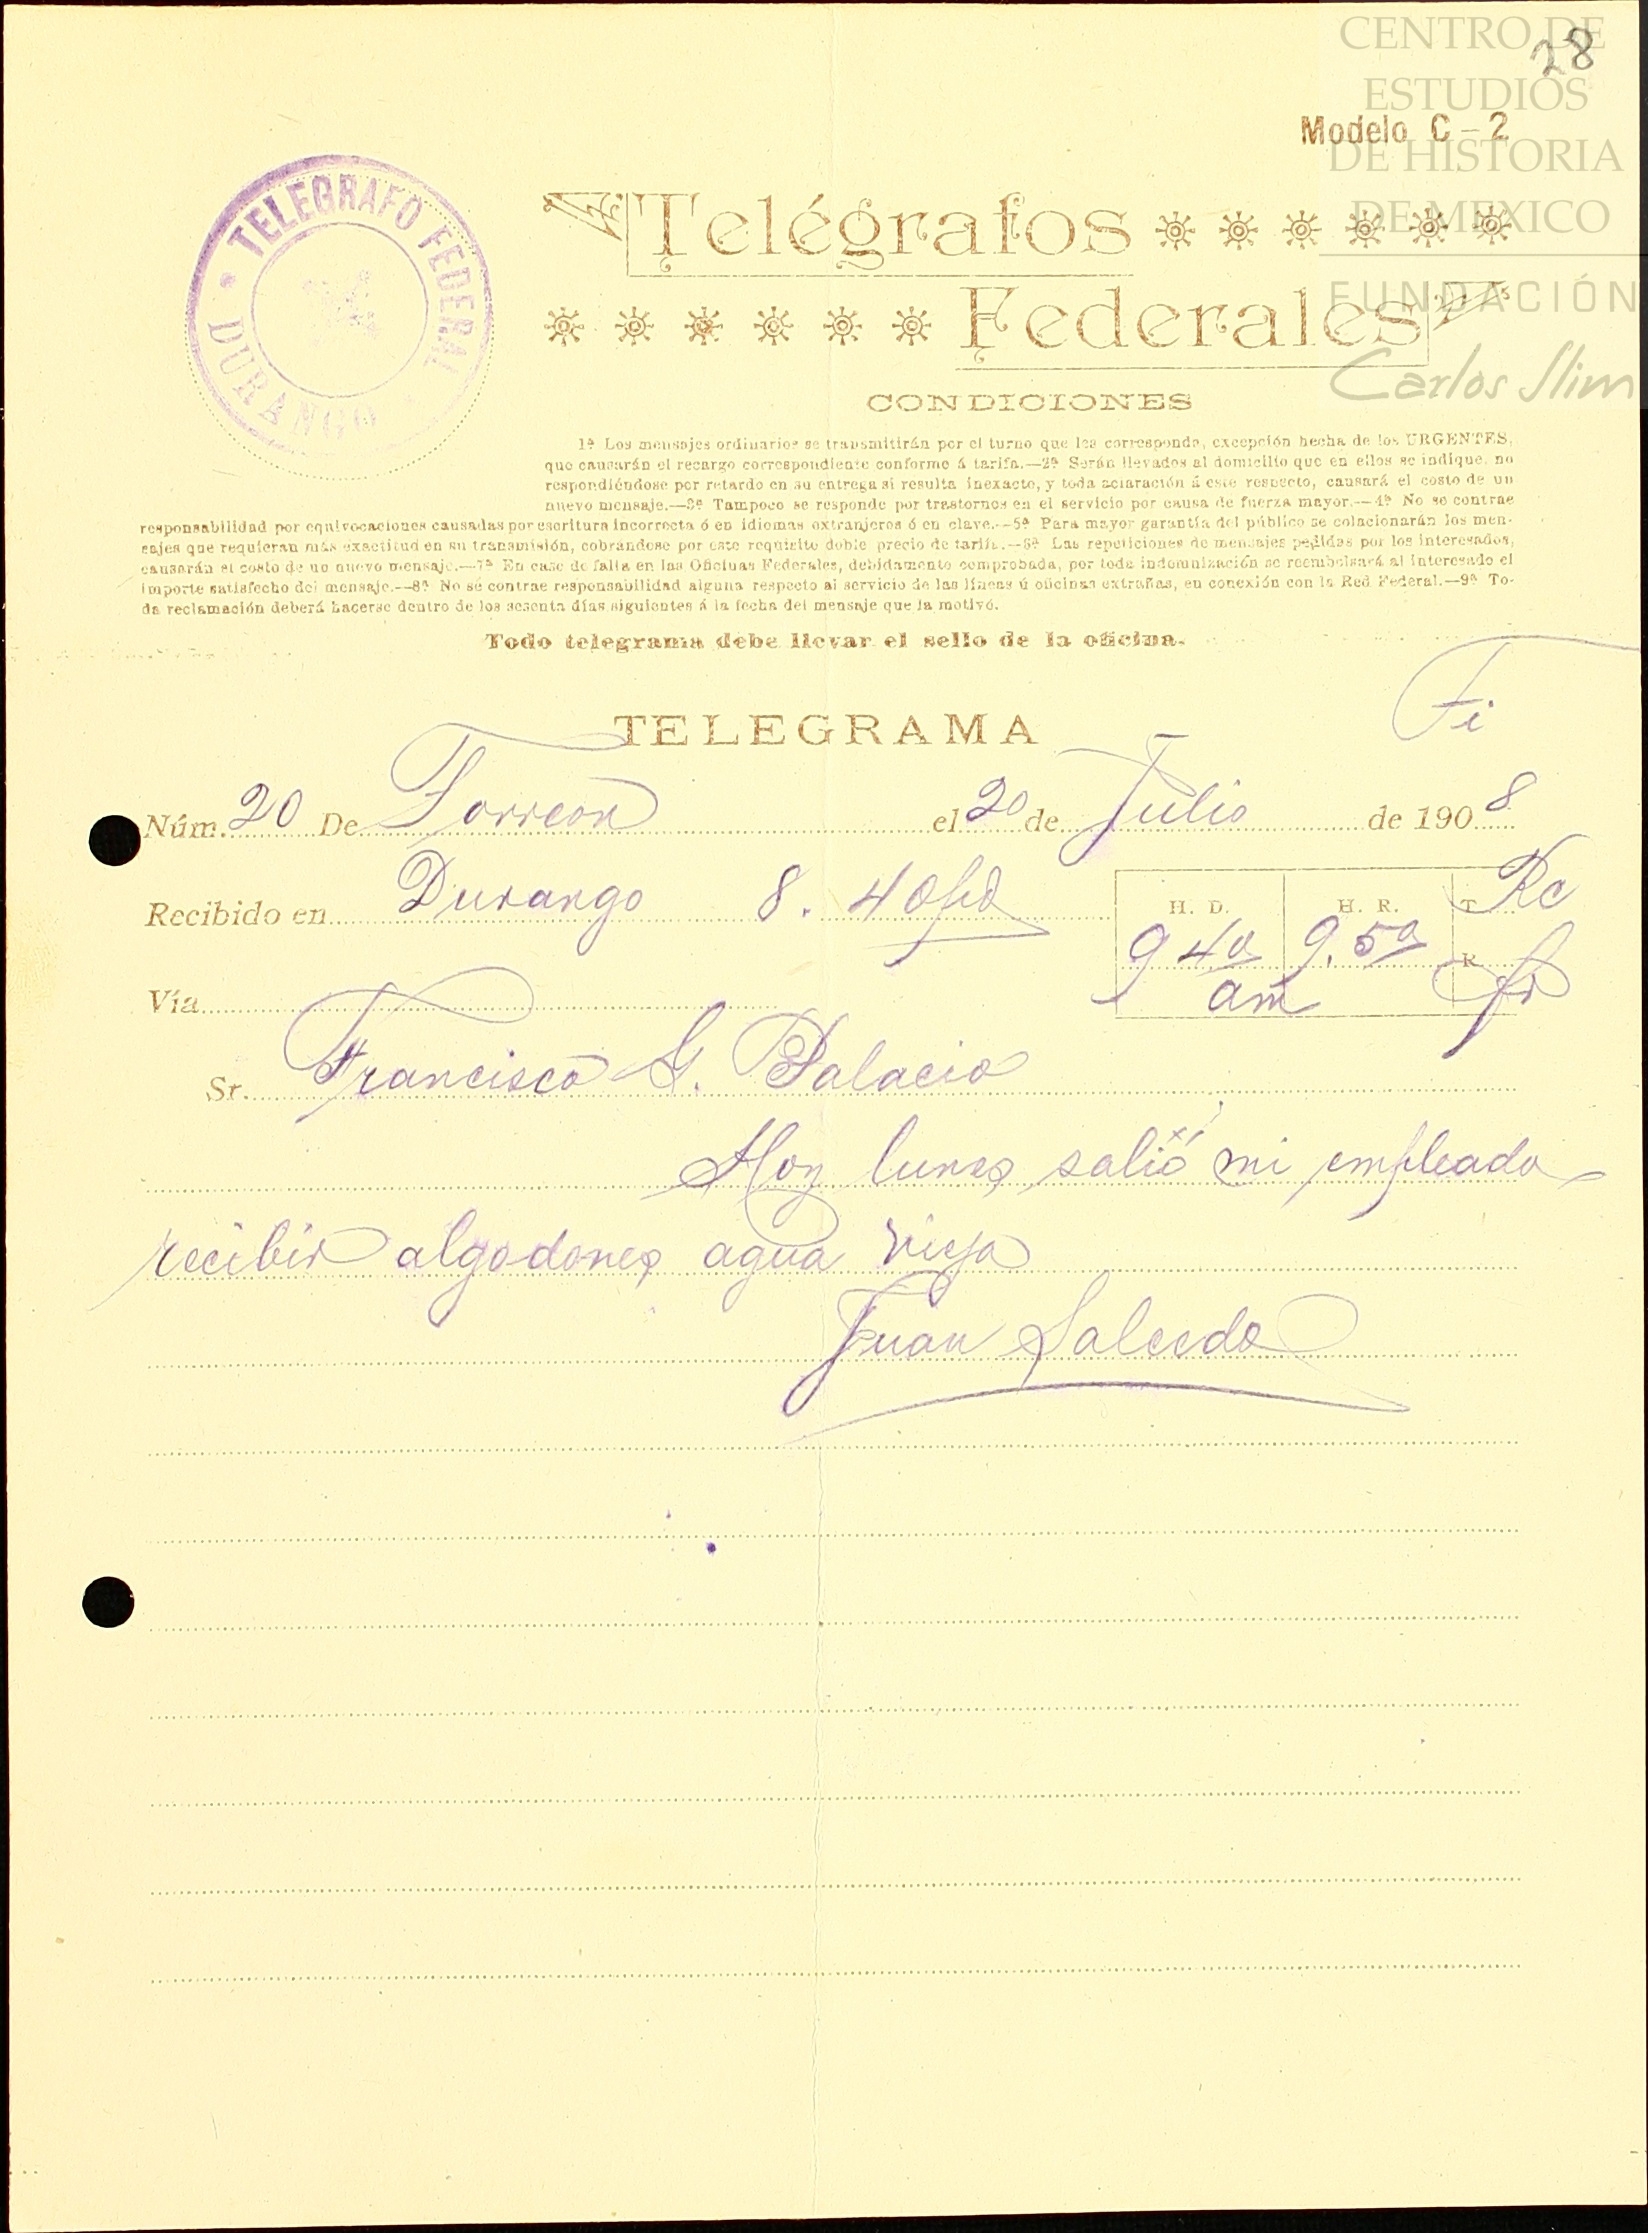 CENTRO DE
ESTUDIOS
DE HISTORIA
DE MEXICO
FUNDACIÓN
Carlos Slim
28
Modelo C-2
TELEGRAFO FEDERAL
DURANGO
Telégrafos
Federales
CONDICIONES
1ª Los mensajes ordinarios se transmitirán por el turno que les corresponda, excepción hecha de los URGENTES,
que causarán el recargo correspondiente conforme á tarifa.—2ª Serán llevados al domicilio que en ellos se indique, no
respondiéndose por retardo en su entrega si resulta inexacto, y toda aclaración á este respecto, causará el costo de un
nuevo mensaje.—3ª Tampoco se responde por trastornos en el servicio por causa de fuerza mayor.—4ª No se contrae
responsabilidad por equivocaciones causadas por escritura incorrecta ó en idiomas extranjeros ó en clave.—5ª Para mayor garantía del público se colacionarán los men-
sajes que requieran más exactitud en su transmisión, cobrándose por este requisito doble precio de tarifa.—6ª Las repeticiones de mensajes pedidas por los interesados,
causarán el costo de un nuevo mensaje.—7ª En caso de falta en las Oficinas Federales, debidamente comprobada, por toda indemnización se reembolsará al interesado el
importe satisfecho del mensaje.—8ª No se contrae responsabilidad alguna respecto al servicio de las líneas ú oficinas extrañas, en conexión con la Red Federal.—9ª To-
da reclamación deberá hacerse dentro de los sesenta días siguientes á la fecha del mensaje que la motivó.
Todo telegrama debe llevar el sello de la oficina.
Fi
TELEGRAMA
Núm. 20 De Torreon el 20 de Julio de 1908
Recibido en Durango 8. 40
H. D. H. R. T Rc
9 40 9.50 R
am
Vía
Sr. Francisco G. Palacio
Hoy lunes salió mi empleado
recibir algodones agua vieja
Juan Salcedo